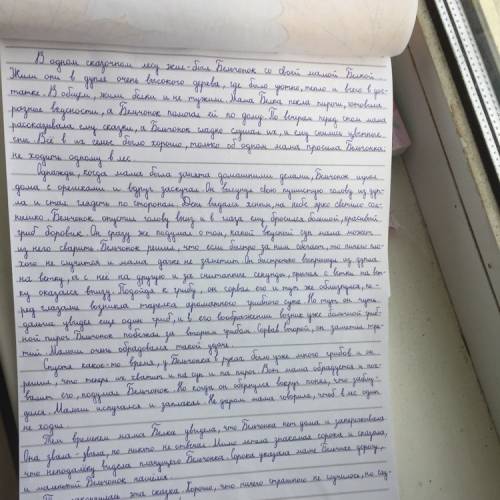 В одном сказочном лесу жил-был Бельчонок со своей мамой Белкой.
Жили они в дупле очень высокого дерева, где было уютно, тепло и всего в дос-
татке. В общем, жили белки и не тужили. Мама Белка пекла пироги, готовила
разные вкусности, а Бельчонок помогал ей по дому. По вечерам перед сном мама
рассказывала ему сказки, а Бельчонок сладко слушал их, и ему снились цветные
сны. Всё в их семье было хорошо, только об одном мама просила Бельчонка:
не ходить одному в лес.
Однажды, когда мама была занята домашними делами, Бельчонок играл
дома с орешками и вдруг заскучал. Он высунул свою пушистую голову из дуп-
ла и стал глядеть по сторонам. День выдался ясным, на небе ярко светило сол-
нышко. Бельчонок опустил голову вниз и в глаза ему бросился большой, красивый
гриб боровик. Он сразу же подумал о том, какой вкусный суп мама может
из него сварить. Бельчонок решил, что если быстро за ним сбегает, то ничего пло-
хого не случится и мама даже не заметит. Он быстренько выпрыгнул из дупла
на ветку, а с неё на другую и за считанные секунды, прыгая с ветки на вет-
ку оказался внизу. Подойдя к грибу, он сорвал его и тут же облизнулся, пе-
ред глазами возникла тарелка ароматного грибного супа. Но тут он чуть
дальше увидел ещё один гриб, и в его воображении возник уже большой гриб-
ной пирог. Бельчонок побежал за вторым грибом. Сорвав второй, он заметил тре-
тий. Малыш очень обрадовался такой удаче.
Спустя какое-то время, у Бельчонка в руках было уже много грибов и он
решил, что теперь их хватит и на суп и на пирог. Вот мама обрадуется и пох-
валит его, подумал Бельчонок. Но когда он обернулся вокруг понял, что заблу-
дился. Малыш испугался и заплакал. Не даром мама говорила, чтоб в лес один
не ходил.
Тем временем мама Белка увидела, что Бельчонка нет дома и запереживала.
Она звала-звала, но никто не отвечал. Мимо летела знакомая сорока и сказала,
что неподалёку видела плачущего Бельчонка. Сорока указала маме Белочке дорогу,
и маленький Бельчонок нашелся.
эта сказка. Хорошо, что ничего страшного не случилось, но